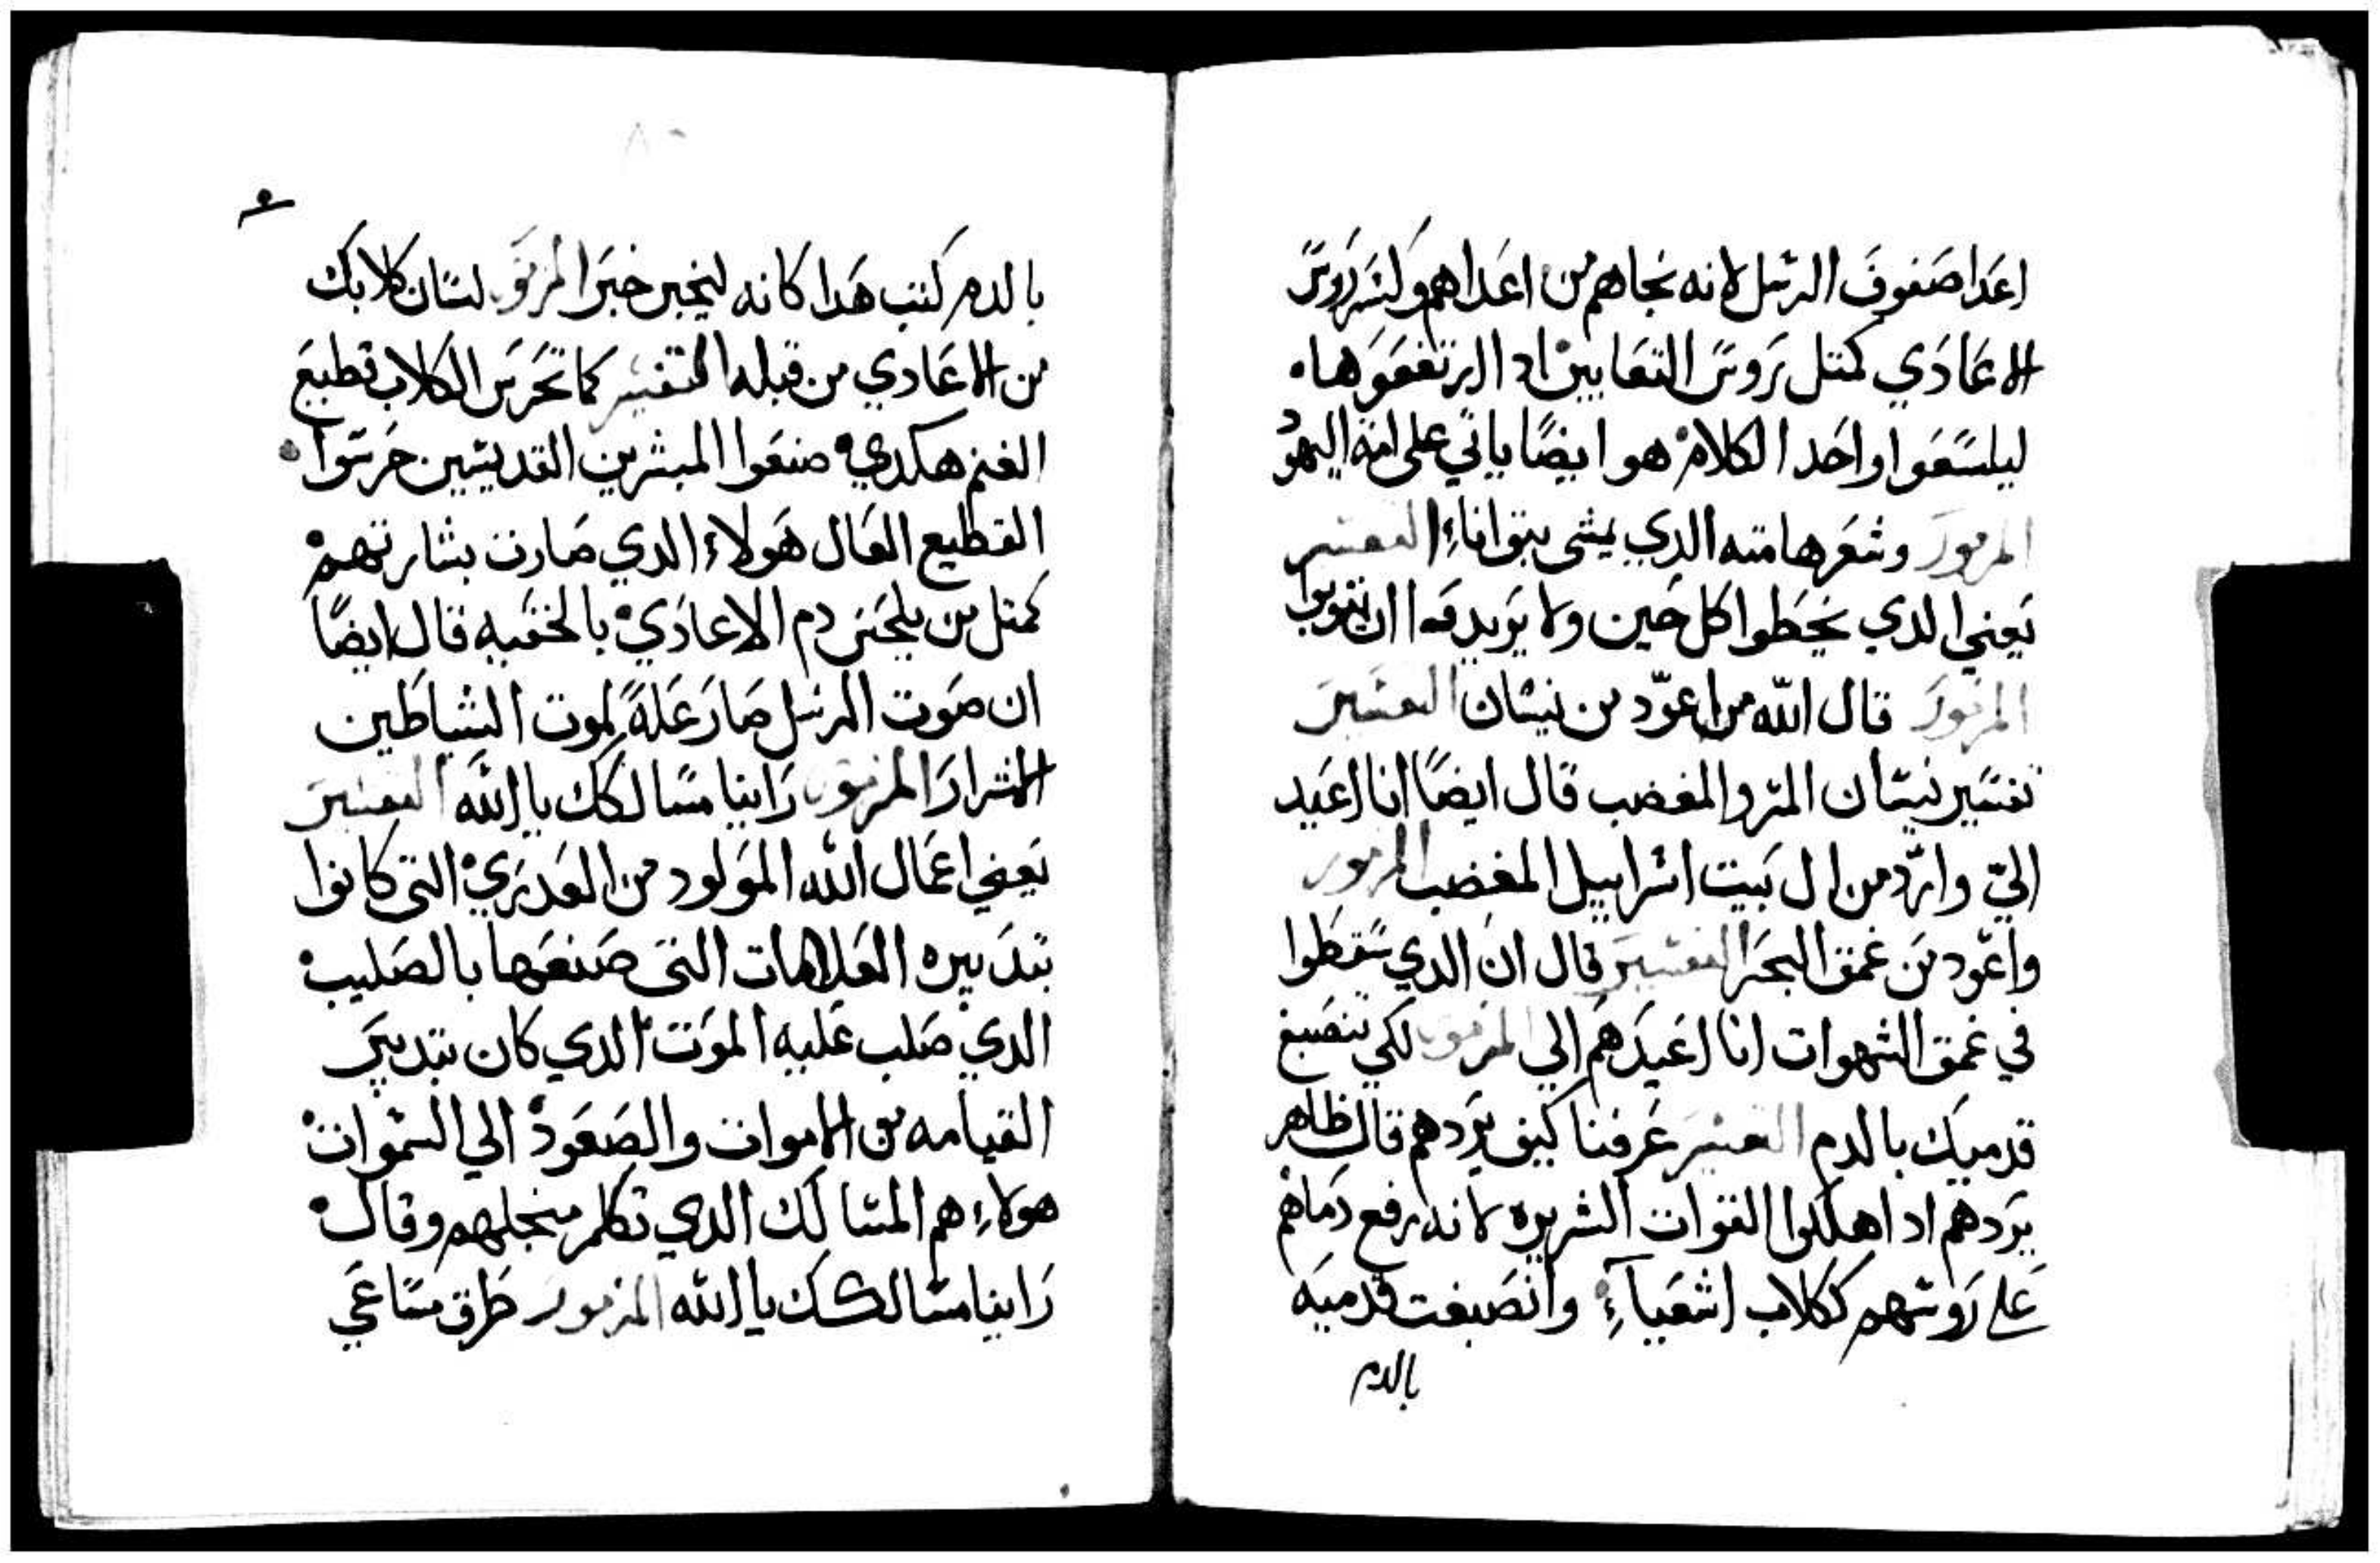 اعدا صفوف الرسل لانه نجاهم من اعداهم وكسر روس
الاعادي كمتل روس التعابين اد الرتفعوها
ليلسعوا واحد الكلام هو ايضا ياتي على امة اليهود
المزمور وشعرهامته الدي يمشى بتواناء التفسير
يعني الدي يخطوا كل حين ولا يريدوا ان يتوبوا
المزمور قال الله من اعود من نيسان التفسير
تفسير نيسان المر والمغضب قال ايضا انا اعيد
الي وارد من ال بيت اسراييل المغضب المزمور
واعود من غمق البحر التفسير قال ان الدي سقطوا
في غمق الشهوات انا اعيدهم الي المزمور لكي تنصبغ
قدميك بالدم التفسير عرفنا كيف يردهم قال ظاهر
يردهم اد اهلكوا القوات الشريره لانه رفع دماهم
على روسهم ككلاب اشعياء وانصبغت قدميه
بالدم
بالدم كتب هدا كانه ليخبر خبر المزمور لسان كلابك
من الاعادي من قبله التفسير كما تحرس الكلاب قطيع
الغنم هكدي صنعوا المبشرين القديسين حرسوا
القطيع العال هولاء الدي صارت بشارتهم
كمتل من يلحس دم الاعادي بالخفيه قال ايضا
ان صوت الرسل صار علة لموت الشياطين
الاشرار المزمور راينا مسالكك يا الله التفسير
يعني اعمال الله المولود من العدري التى كانوا
بتدبيره العلامات التى صنعها بالصليب
الدي صلب عليه الموت الدي كان بتدبير
القيامه من الاموات والصعود الي السموات
هولاء هم المسالك الدي تكلم منجلهم وقال
راينا مسالكك يا الله المزمور طرق مساعي